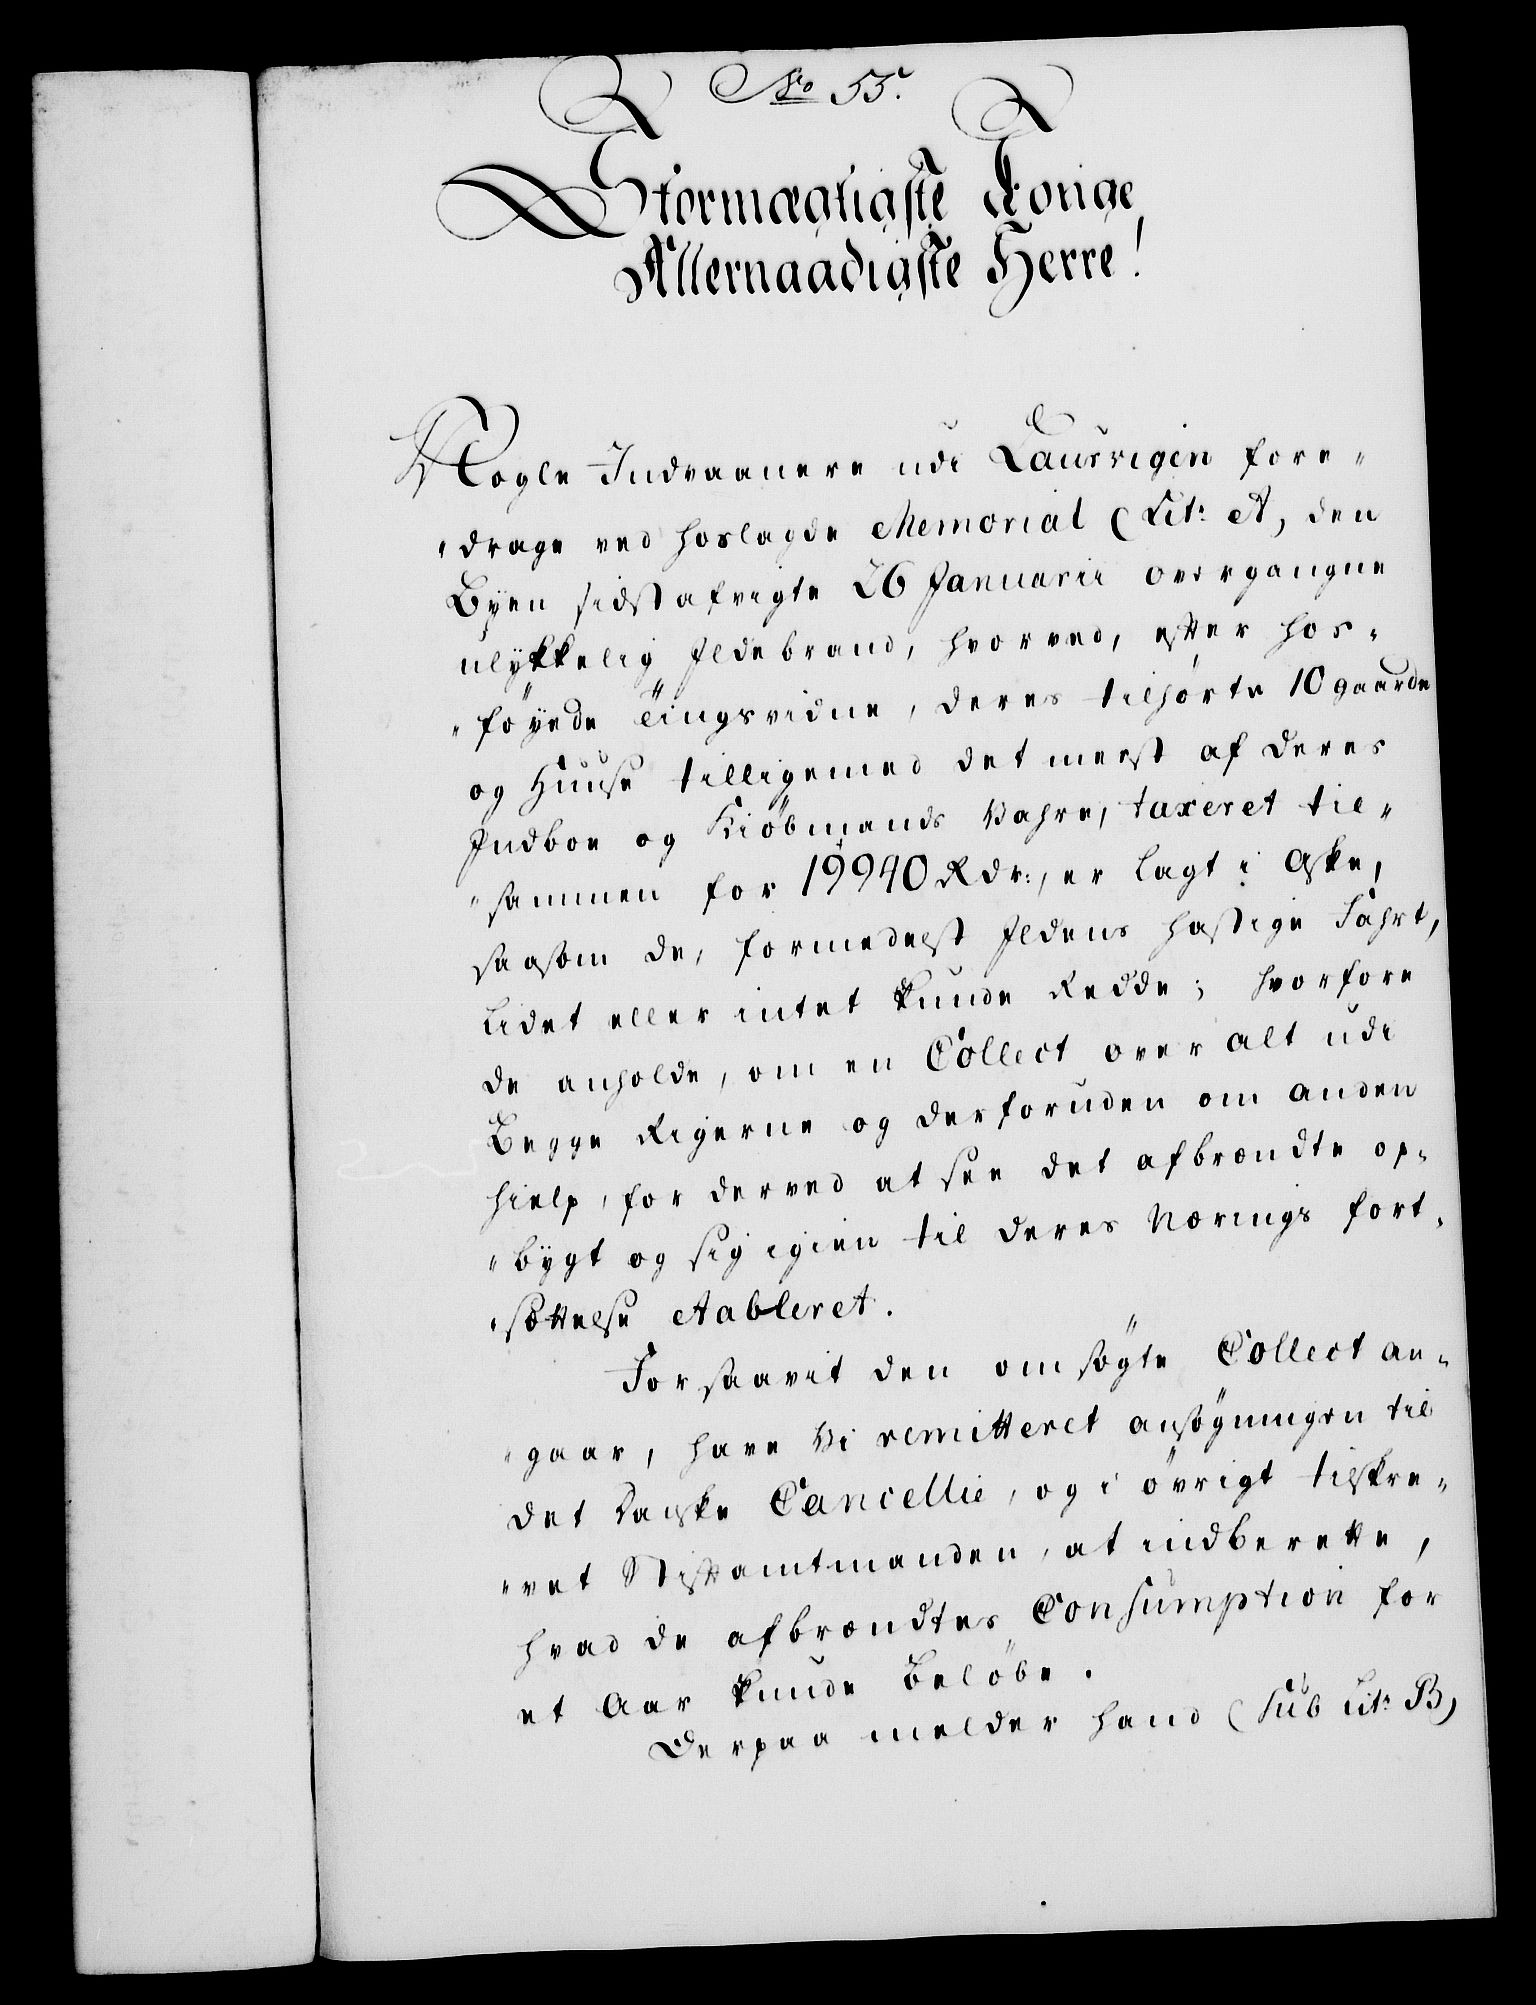 No 55.
Stormægtigste Konge
Allernaadigste Herre!
Nogle Indvaanere udi Laurvigen fore-
drage ved hoslagde Memorial (Lit: A, den
Byen sidstafvigte 26 Januarii overgangne
ulykkelig Ildebrand, hvorved, efter hos-
föyede Tingsvidne, deres tilhörte 10 gaarde
og Huuse tilligemed det meest af deres
Indboe og Kiöbmands Vahre, taxeret til-
sammen for 19940 Rdr:, er lagt i Aske,
saasom de, formedelst Ildens hastige Fahrt,
Lidet eller intet kunde Redde; hvorfore
de anholde, om en Collect over alt udi
Begge Rigerne og derforuden om anden
hielp, for derved at see det afbrændte op-
bygt og sig igien til deres Nærings fort-
sættelse etableret.
Forsaavit den omsögte Collect an-
gaar, have Vi remitteret ansögningen til
det danske Cancellie, og i övrigt tilskre-
vet Stiftamtmanden, at indberette,
hvad de afbrændtes Consumption for
et Aar kunde Belöbe.
Derpaa melder hand (Sub Lit: B,